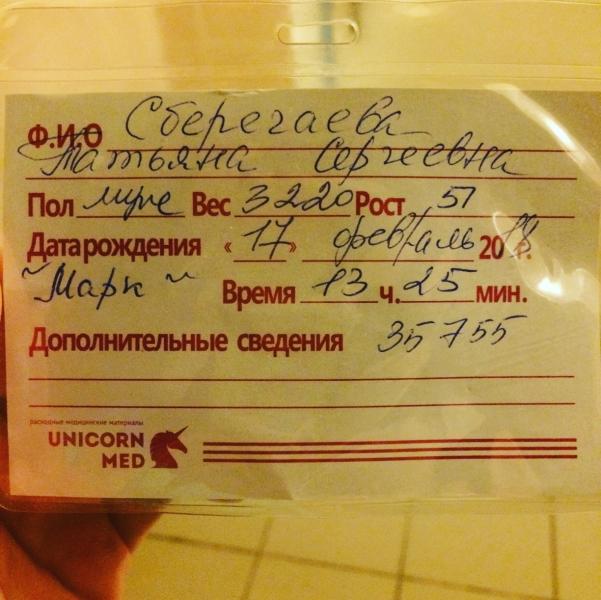 Ф.И.О Сберегаева
Татьяна Сергеевна
Пол муж Вес 3220 Рост 51
Дата рождения «17» февраль 2018г.
"Марк" Время 13 ч. 25 мин.
Дополнительные сведения 35755
расходные медицинские материалы
UNICORN
MED